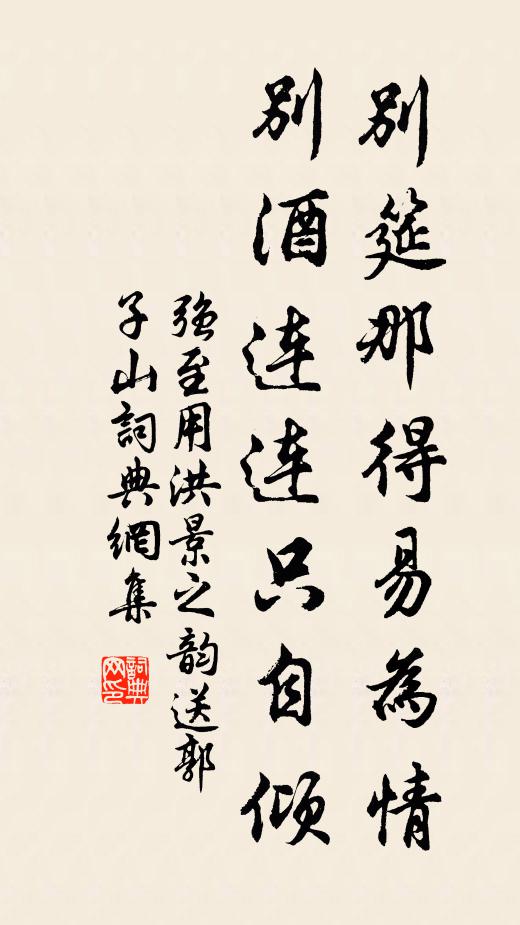 別筵那得易為情
別酒連連只自傾
強至用洪景之韵送郭
子山詞典網集
詞典
网印